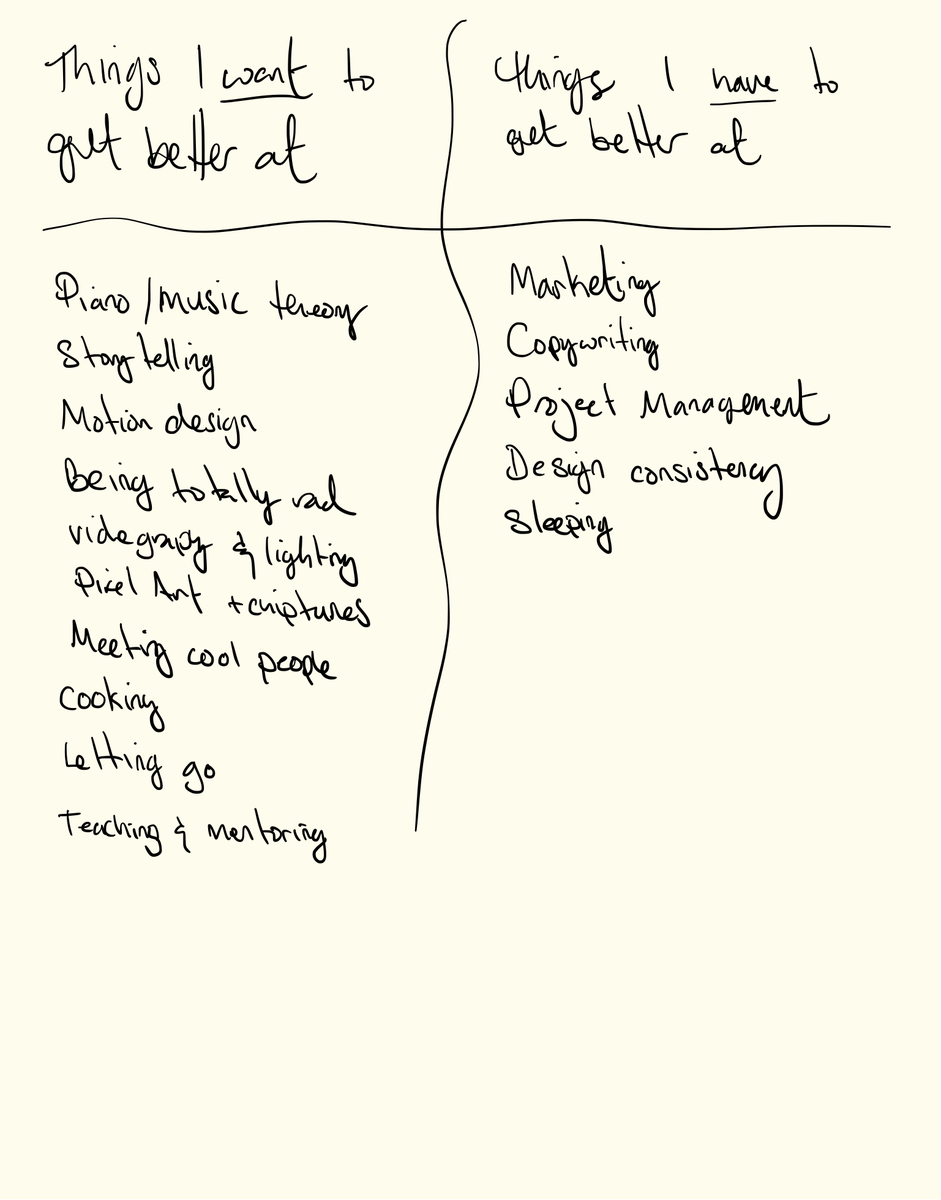 Things I want to
get better at
Things I have to
get better at
Piano / music teheory
Storytelling
Motion design
Being totally rad
videgrapy & lighting
Pixel Art +
Meeting cool people
Cooking
Letting go
Teaching & mentoring
Marketing
Copywriting
Project Management
Design consistency
Sleeping